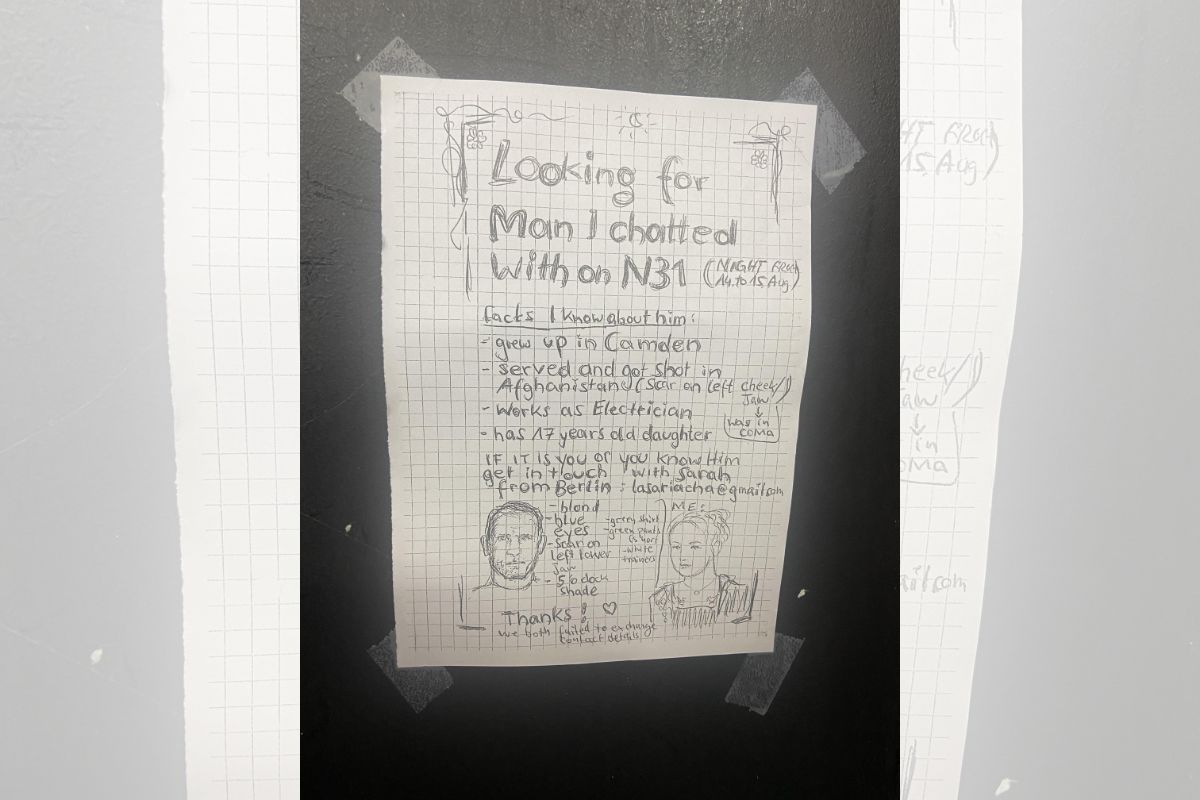 Looking for
Man I chatted
with on N31 (NIGHT FROM
14. to 15 Aug)
facts I know about him:
- grew up in Camden
- served and got shot in
Afghanistan (scar on left cheek/)
Jaw
↓
was in
COMA
- works as Electrician
- has 17 years old daughter
IF IT IS YOU or you know Him
get in touch with Sarah
from Berlin: lasariacha@gmail.com
- blond
- blue
eyes
- scar on
left lower
jaw
- 5 o clock
shade
- green shirt
- green pants
(short
- white
trainers
ME:
Thanks! ♡
we both failed to exchange
contact details
HT FROM
15 Aug)
heek/)
aw
↓
in
OMA
ail.com